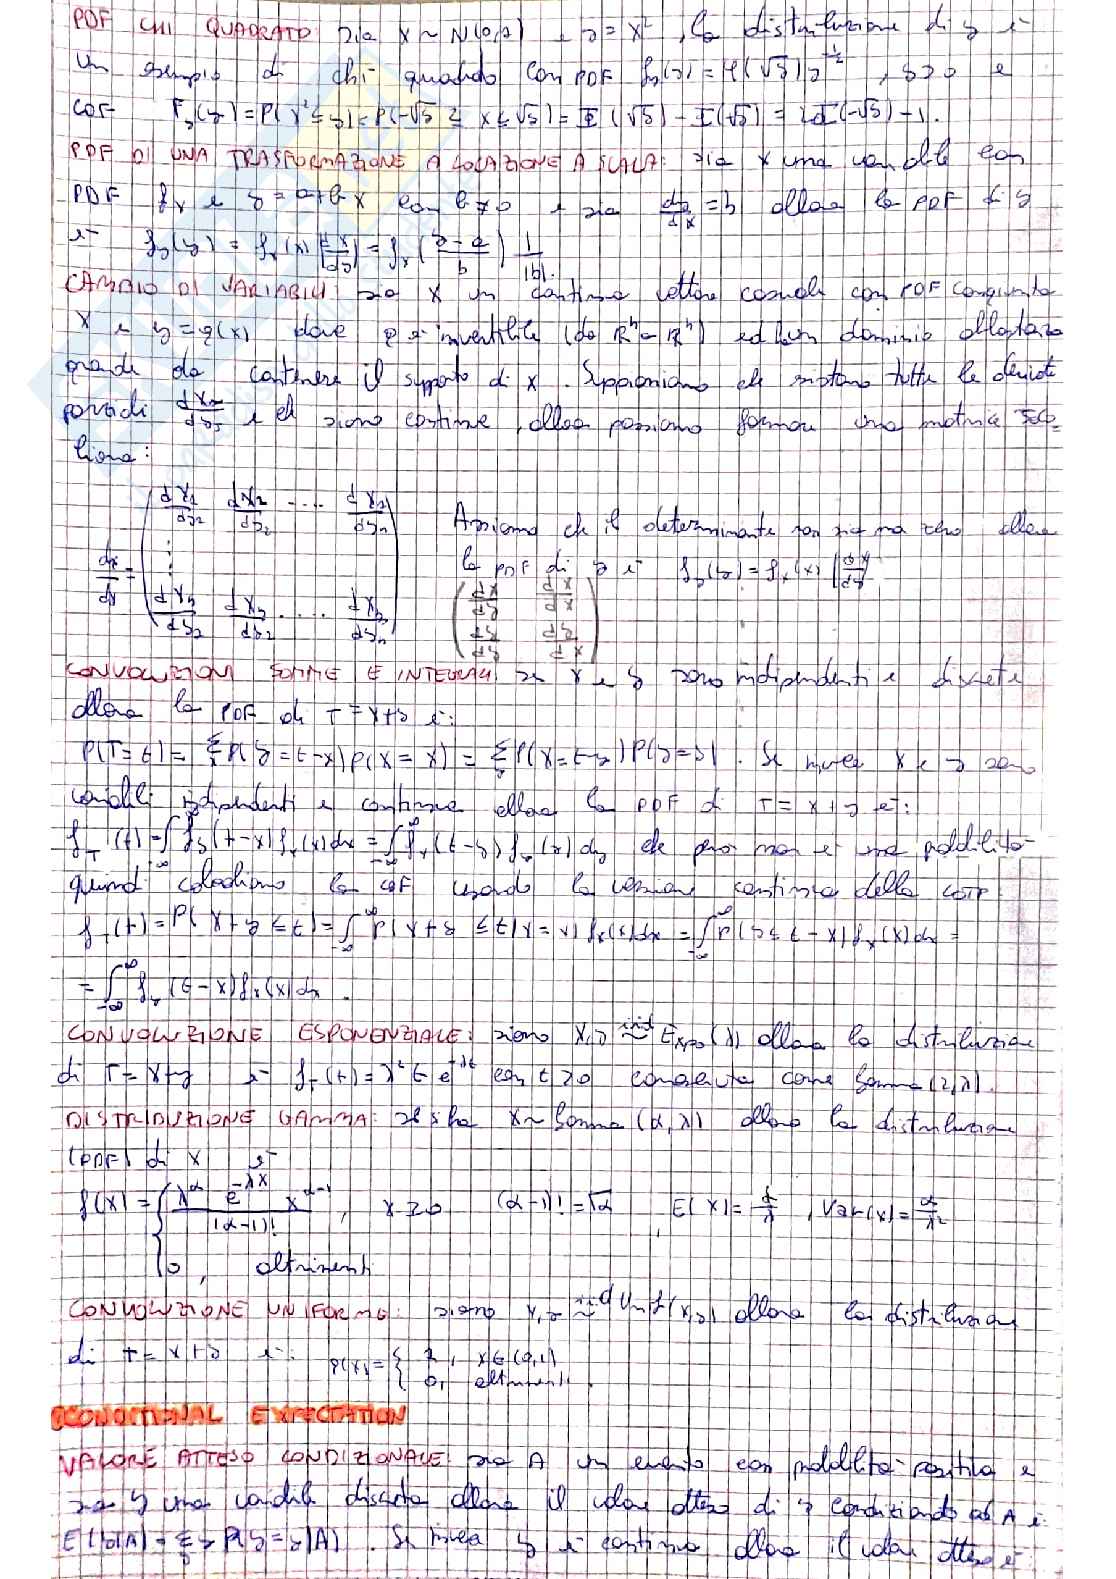 PDF CHI QUADRATO sia X ~ N(0,1) e y = x², la distribuzione di y è
un esempio di chi-quadrato con PDF fy(y) = φ(√y) y^-1/2, y>0 e
CDF Fy(y) = P(x² ≤ y) = P(-√y ≤ x ≤ √y) = Φ(√y) - Φ(-√y) = 2Φ(√y) - 1.
PDF DI UNA TRASFORMAZIONE A LOCAZIONE A SCALA: sia x una variabile con
PDF fx e y = a+bx con b≠0 e sia dy/dx = b allora la PDF di y
è fy(y) = fx(x) |dx/dy| = fx((y-a)/b) 1/|b|.
CAMBIO DI VARIABILI: sia X un continuo vettore casuale con PDF congiunta
X e y = g(x) dove g è invertibile (da Rⁿ - Rⁿ) ed ha un dominio abbastanza
grande da contenere il supporto di x. Supponiamo che esistono tutte le derivate
parziali dxi/dyj e che siano continue, allora possiamo formare una matrice Jaco-
biana:
dx/dy = ( dx1/dy1 dx1/dy2 .... dx1/dyn
dxn/dy1 dxn/dy2 .... dxn/dyn )
Assumiamo che il determinante non sia mai zero allora
la PDF di y è fy(y) = fx(x) |dx/dy|
CONVOLUZIONI SOMME E INTEGRALI se x e y sono indipendenti e discrete
allora la PDF di T = x+y è:
P(T=t) = Σ P(y=t-x) P(X=x) = Σ P(X=t-y) P(y=y). Se invece x e y sono
variabili indipendenti e continue allora la PDF di T = x+y è:
fT(t) = ∫ fy(t-x) fx(x) dx = ∫ fx(t-y) fy(y) dy che però non è una probabilità
quindi calcoliamo la CDF usando la versione continua della LOTP
fT(t) = P(x+y ≤ t) = ∫ P(x+y ≤ t|X=x) fx(x) dx = ∫ P(y ≤ t-x) fx(x) dx =
= ∫ fy(t-x) fx(x) dx.
CONVOLUZIONE ESPONENZIALE: siano x,y iid ~ Expo(λ) allora la distribuzione
di T = x+y è fT(t) = λ² t e^-λt con t>0 conosciuta come Gamma(2,λ).
DISTRIBUZIONE GAMMA: se si ha X ~ Gamma(α,λ) allora la distribuzione
(PDF) di x è
f(x) = { λ^α e^-λx x^α-1 / (α-1)! , x≥0 (α-1)! = Γα E(x) = α/λ , Var(x) = α/λ²
0, altrimenti
CONVOLUZIONE UNIFORME: siano x,y iid ~ Unif(x,y) allora la distribuzione
di T = x+y è: p(x) = { 1, x∈(0,1)
0, altrimenti.
CONDITIONAL EXPECTATION
VALORE ATTESO CONDIZIONALE: sia A un evento con probabilità positiva e
sia y una variabile discreta allora il valore atteso di y condizionato ad A è:
E(y|A) = Σ y P(y=y|A). Se invece y è continua allora il valore atteso è: